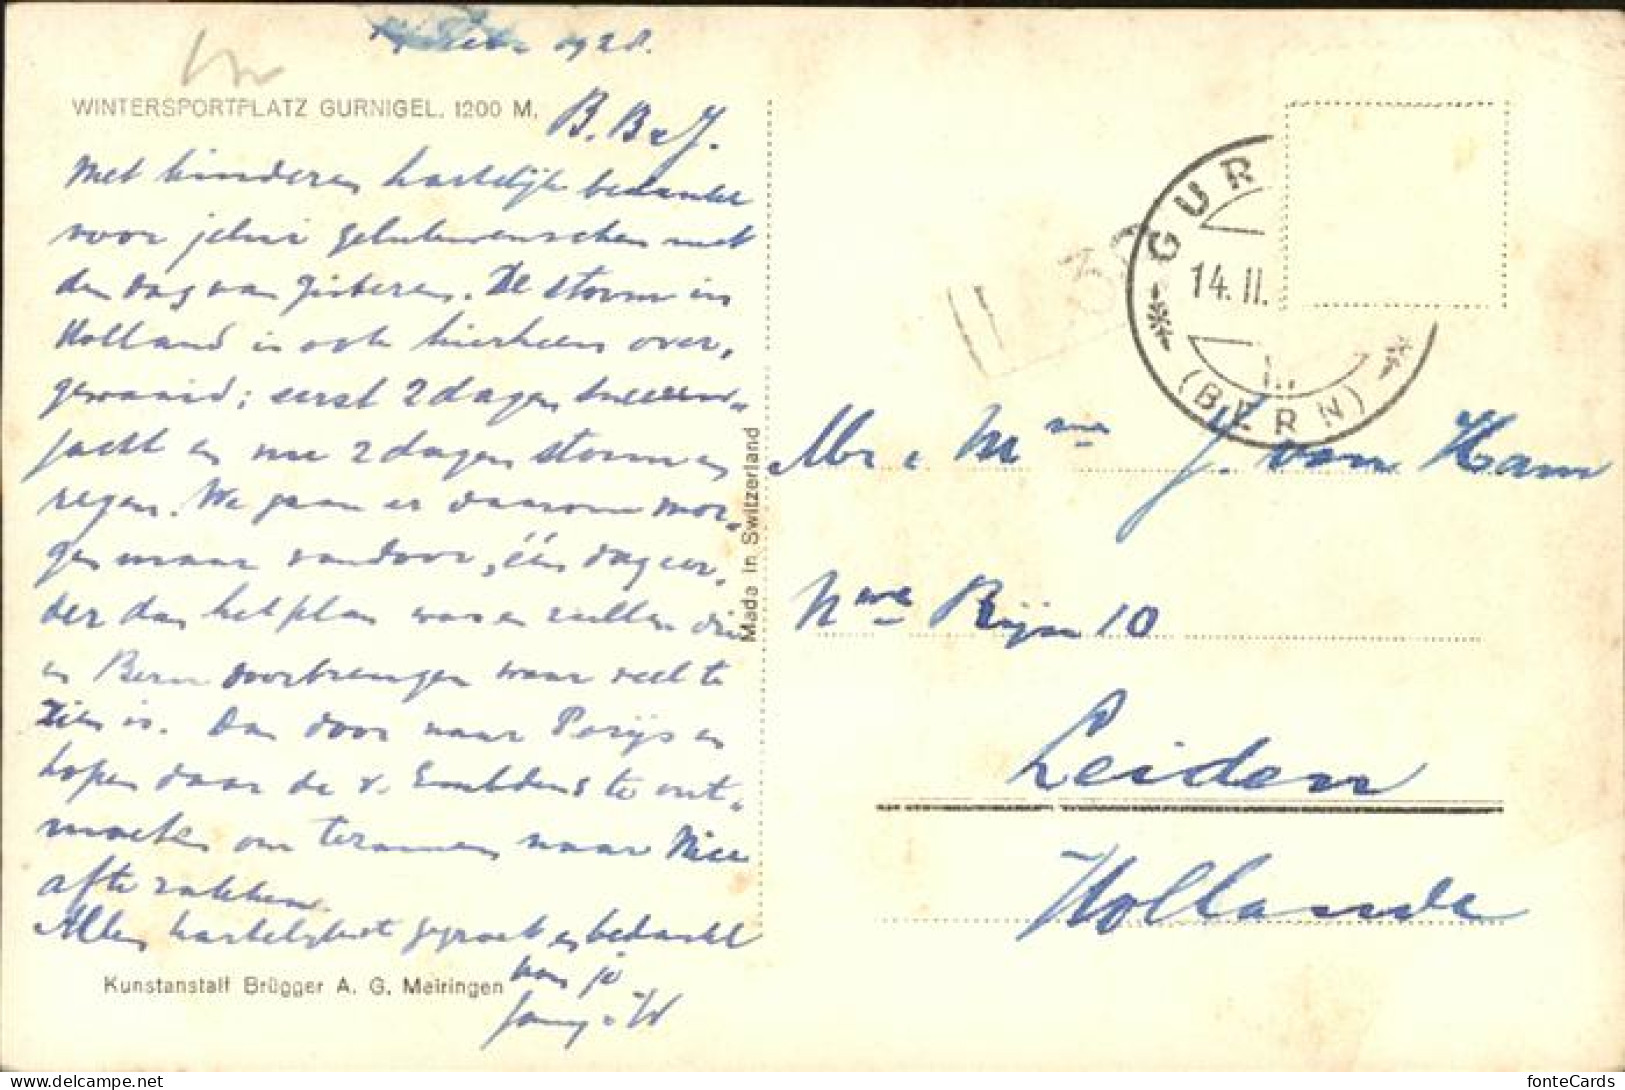 Febr. 1928.
WINTERSPORTPLATZ GURNIGEL. 1200 M.
B. B & J.
Met kinderen hartelijk bedankt
voor jelui gelukwenschen met
den dag van gisteren. De storm in
Holland is ook hierheen over,
gewaaid; eerst 2 dagen sneeuw-
jacht en nu 2 dagen storm en
regen. We gaan er daarom mor-
gen maar vandoor, één dag eer,
der dan het plan was en zullen die
in Bern doorbrengen waar veel te
zien is. Dan door naar Parijs en
hopen daar de v. Embdens te ont-
moeten om tezamen naar Nice
af te zakken.
Allen hartelijkst gegroet en bedankt
van je
Jony & W
Kunstanstalt Brügger A. G. Meiringen
Made in Switzerland
GUR
14. II.
(BERN)
Mr & Mme J. van Ham
Nwe Rijn 10
Leiden
Hollande
fonteCards